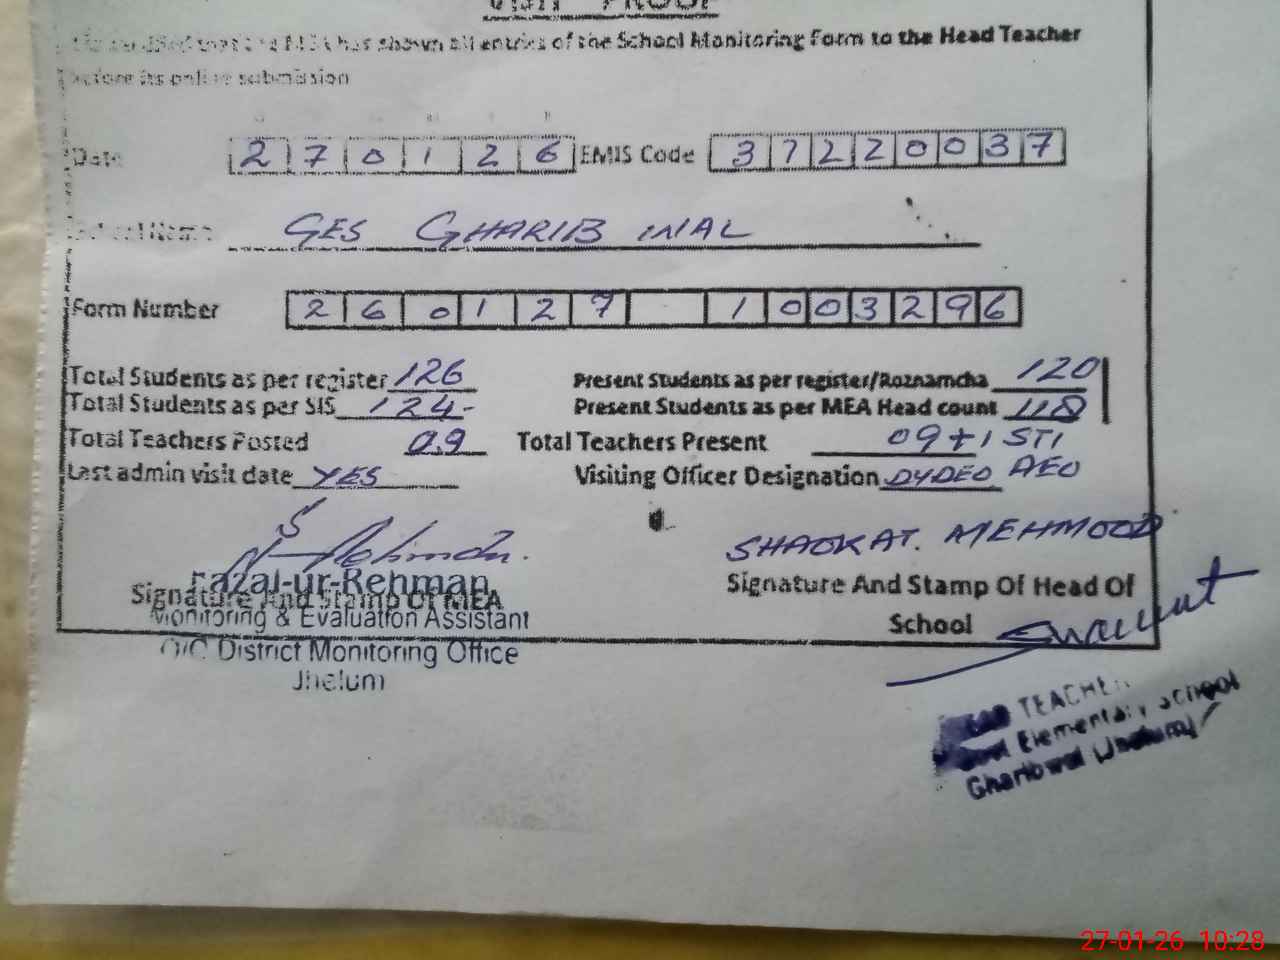 VISIT PROOF
that the MEA has shown all entries of the School Monitoring Form to the Head Teacher
before its online submission
Date 2 7 0 1 2 6 EMIS Code 3 7 2 2 0 0 3 7
School Name GES GHARIB WAL
Form Number 2 6 0 1 2 7 1 0 0 3 2 9 6
Total Students as per register 126 Present Students as per register/Roznamcha 120
Total Students as per SIS 124- Present Students as per MEA Head count 118
Total Teachers Posted 09 Total Teachers Present 09+1 STI
Last admin visit date YES Visiting Officer Designation DYDEO AEO
SHAOKAT. MEHMOOD
Fazal-ur-Rehman
Signature And Stamp Of MEA Signature And Stamp Of Head Of School
Monitoring & Evaluation Assistant
O/C District Monitoring Office
Jhelum
TEACHER
Elementary School
Gharibwal
27-01-26 10:28